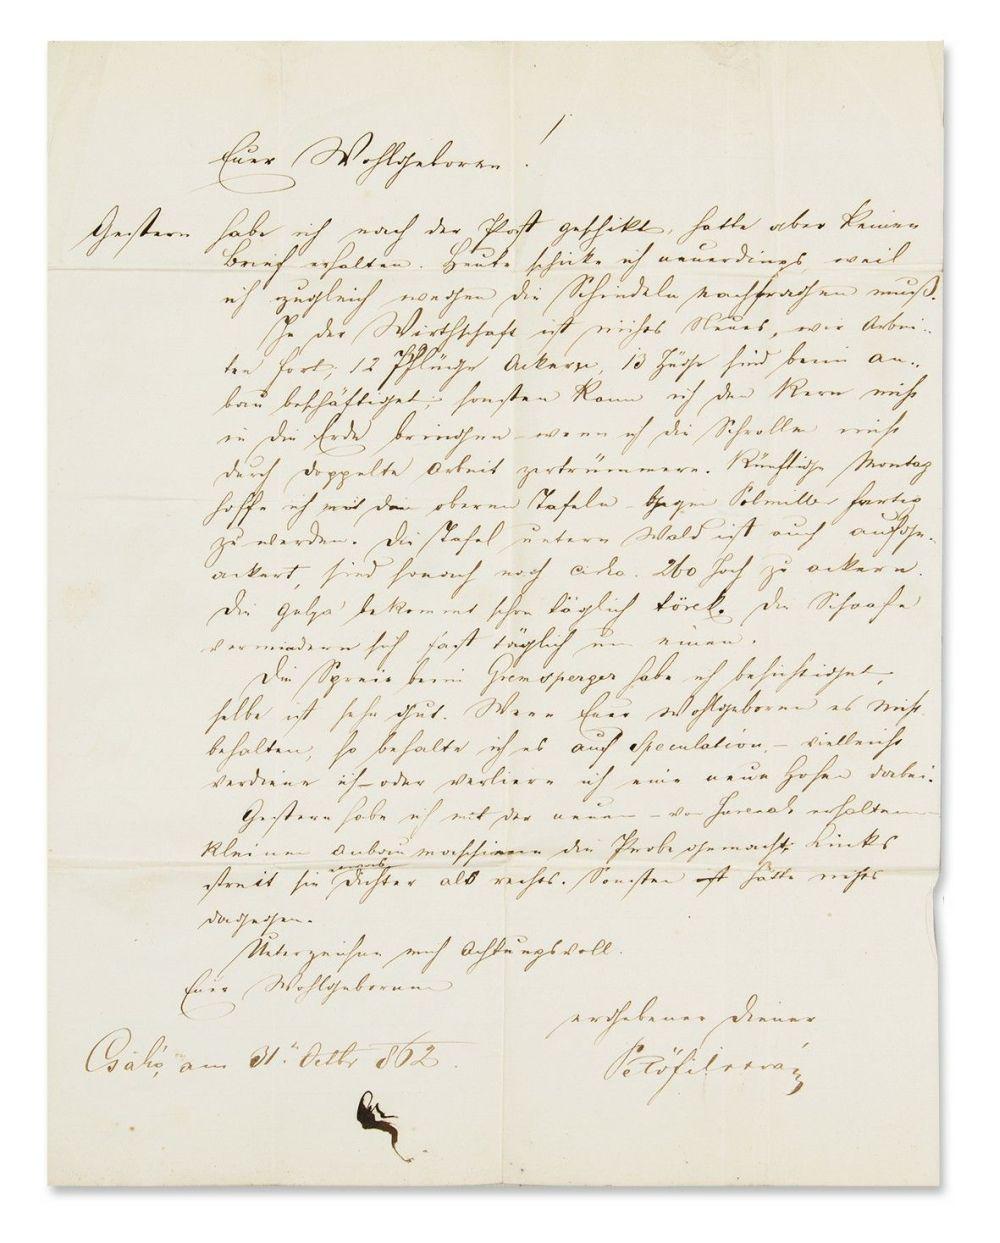 Euer Wohlgeboren!
Gestern habe ich nach der Post geschikt, hatte aber keinen
Brief erhalten. Heute schicke ich neuerdings, weil
ich zugleich wegen die Schindeln nachfragen muß.
In der Wirthschaft ist nichts Neues, wir arbei-
ten fort, 12 Pflüge Ackern, 13 Züge sind beim an-
bau beschäftiget, sonsten kann ich den Kern nicht
in die Erde bringen – wenn ich die Schrollen nicht
durch doppelte Arbeit zertrümmere. Künftige Montag
hoffe ich mit den oberen Tafeln – gegen fertig
zu werden. Die Tafel untern Wald ist auch aufge-
ackert, sind sonach noch cirka. 260 Joch zu ackern.
Die gulya bekommt schon täglich törek. Die Schaafe
vermindern sich fast täglich um einen.
Die Spreu beim Gremsperger habe ich besichtiget,
selbe ist sehr gut. Wenn Euer Wohlgeboren es nicht
behalten, so behalte ich es auf Speculation, – vielleicht
verdiene ich – oder verliere ich eine neue Hosen dabei.
Gestern habe ich mit der neuen – von erhaltenen
kleinen anbau maschiene die Probe gemacht; Links
streut sie etwas Dichter als rechts. Sonsten ist hätte nichts
dagegen.
Unterzeichne mich Achtungsvoll.
Euer Wohlgeboren
ergebener Diener
Csákó, am 31. Octbr 862.
Petőfi István